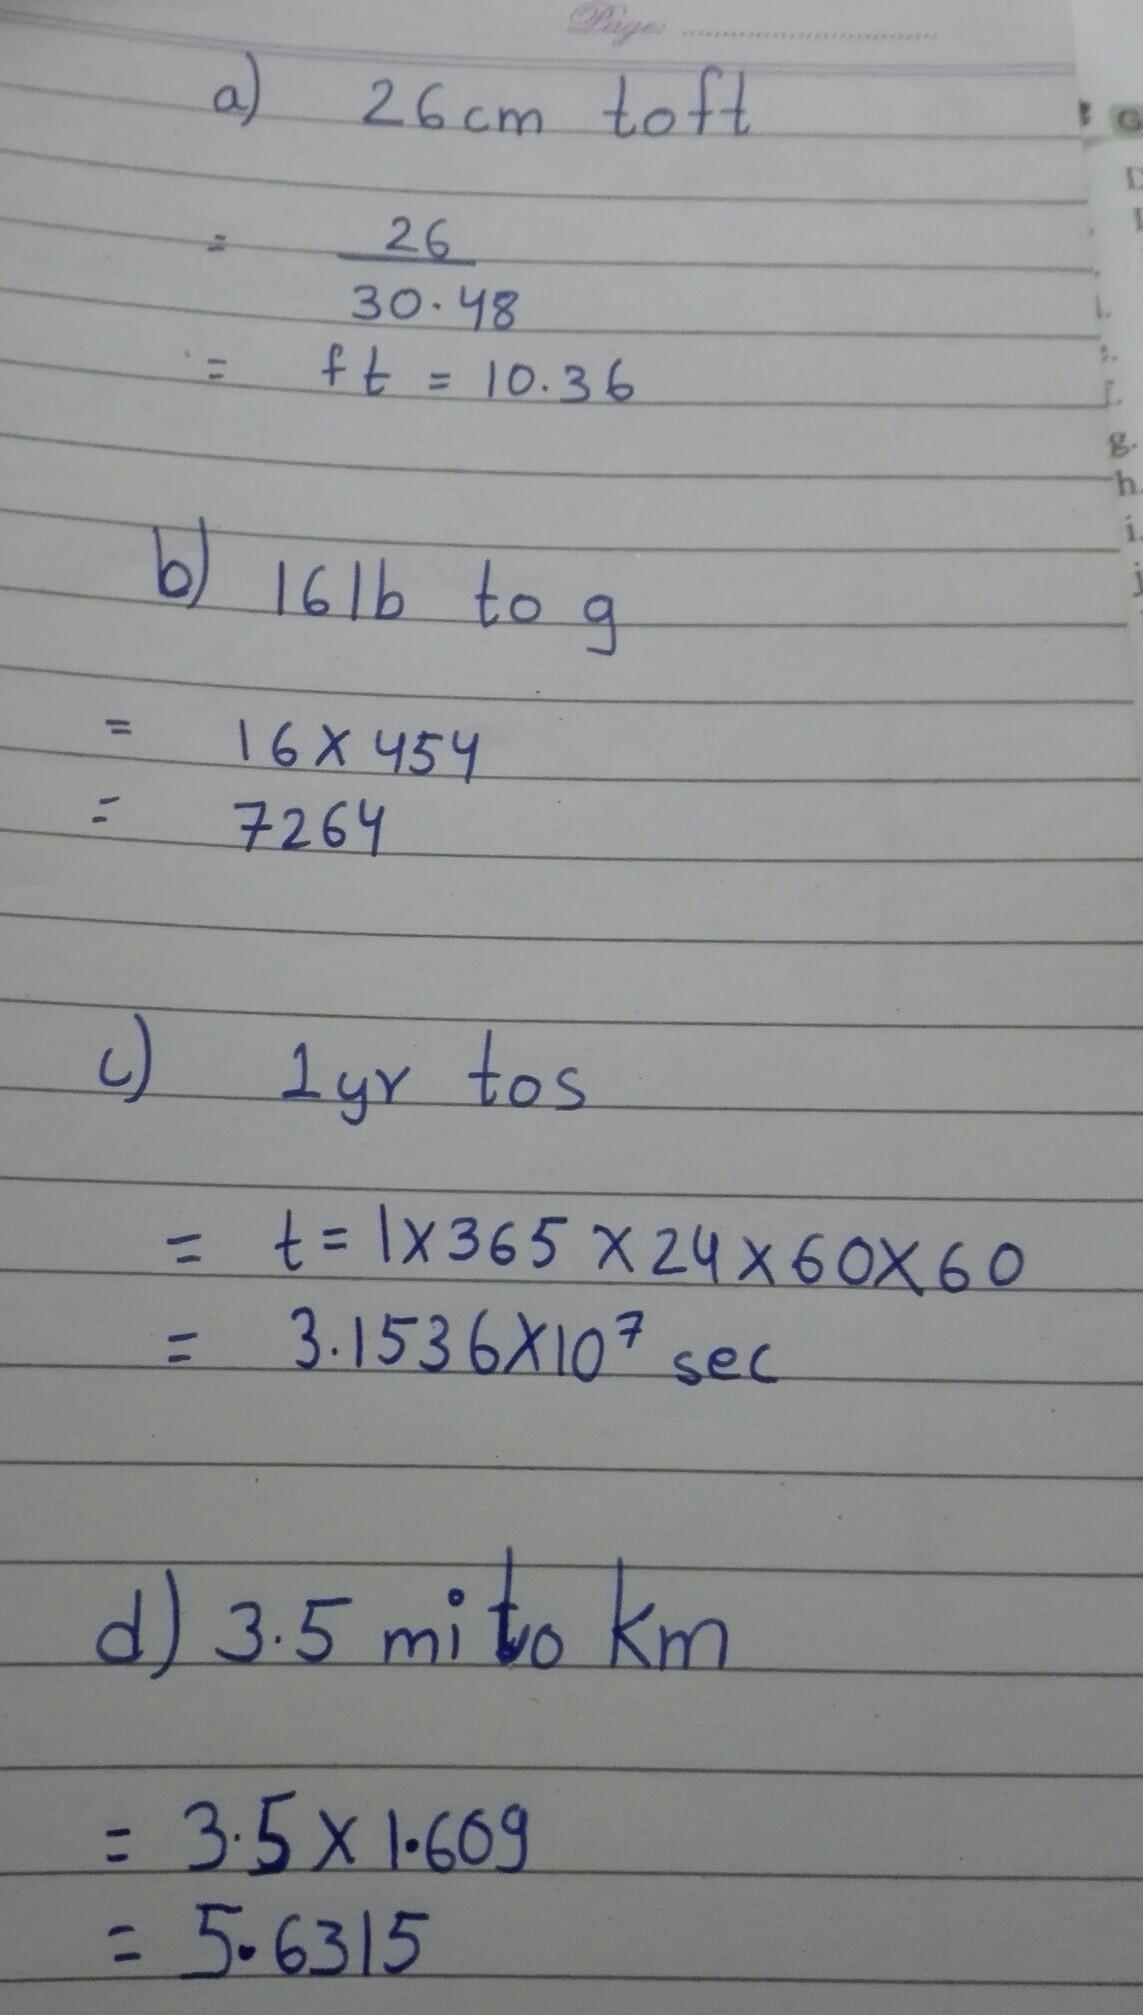 Page:
a) 26 cm to ft
= 26
30.48
= ft = 10.36
b) 16 lb to g
= 16 × 454
= 7264
c) 1 yr to s
= t = 1 × 365 × 24 × 60 × 60
= 3.1536 × 10⁷ sec
d) 3.5 mi to km
= 3.5 × 1.609
= 5.6315
g.
h.
i.
j